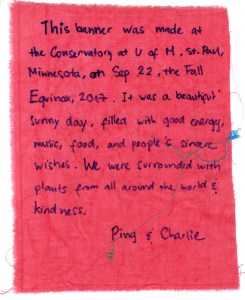 This banner was made at
the Conservatory at U of M, St. Paul,
Minnesota, on Sep 22, the Fall
Equinox, 2017. It was a beautiful
sunny day, filled with good energy,
music, food, and people's sincere
wishes. We were surrounded with
plants from all around the world &
kindness.
Ping & Charlie